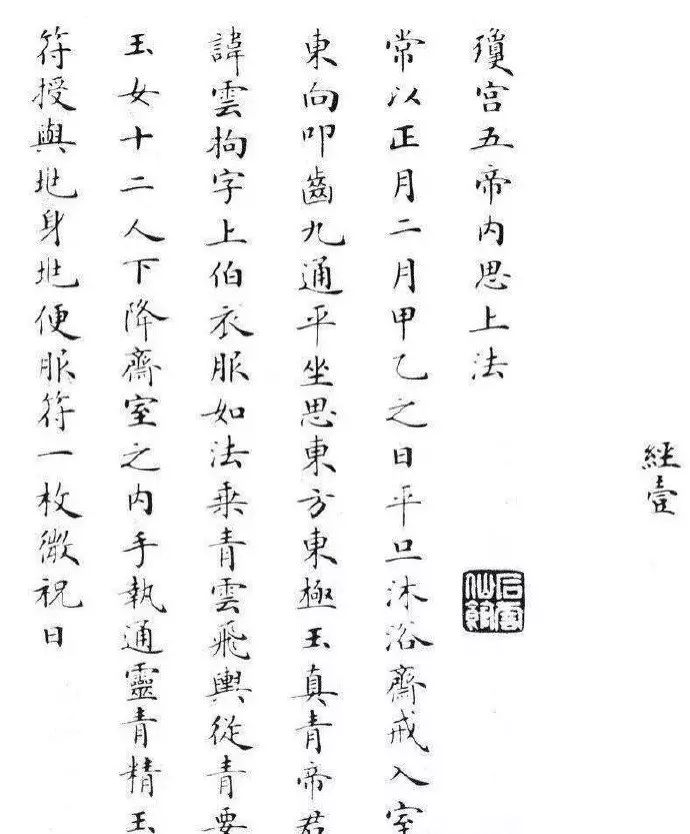 經壹
瓊宮五帝内思上法
常以正月二月甲乙之日平旦沐浴齋戒入室
東向叩齒九通平坐思東方東極玉真青帝君
諱雲拘字上伯衣服如法乘青雲飛輿從青要
玉女十二人下降齋室之内手執通靈青精玉
符授與兆身兆便服符一枚微祝曰